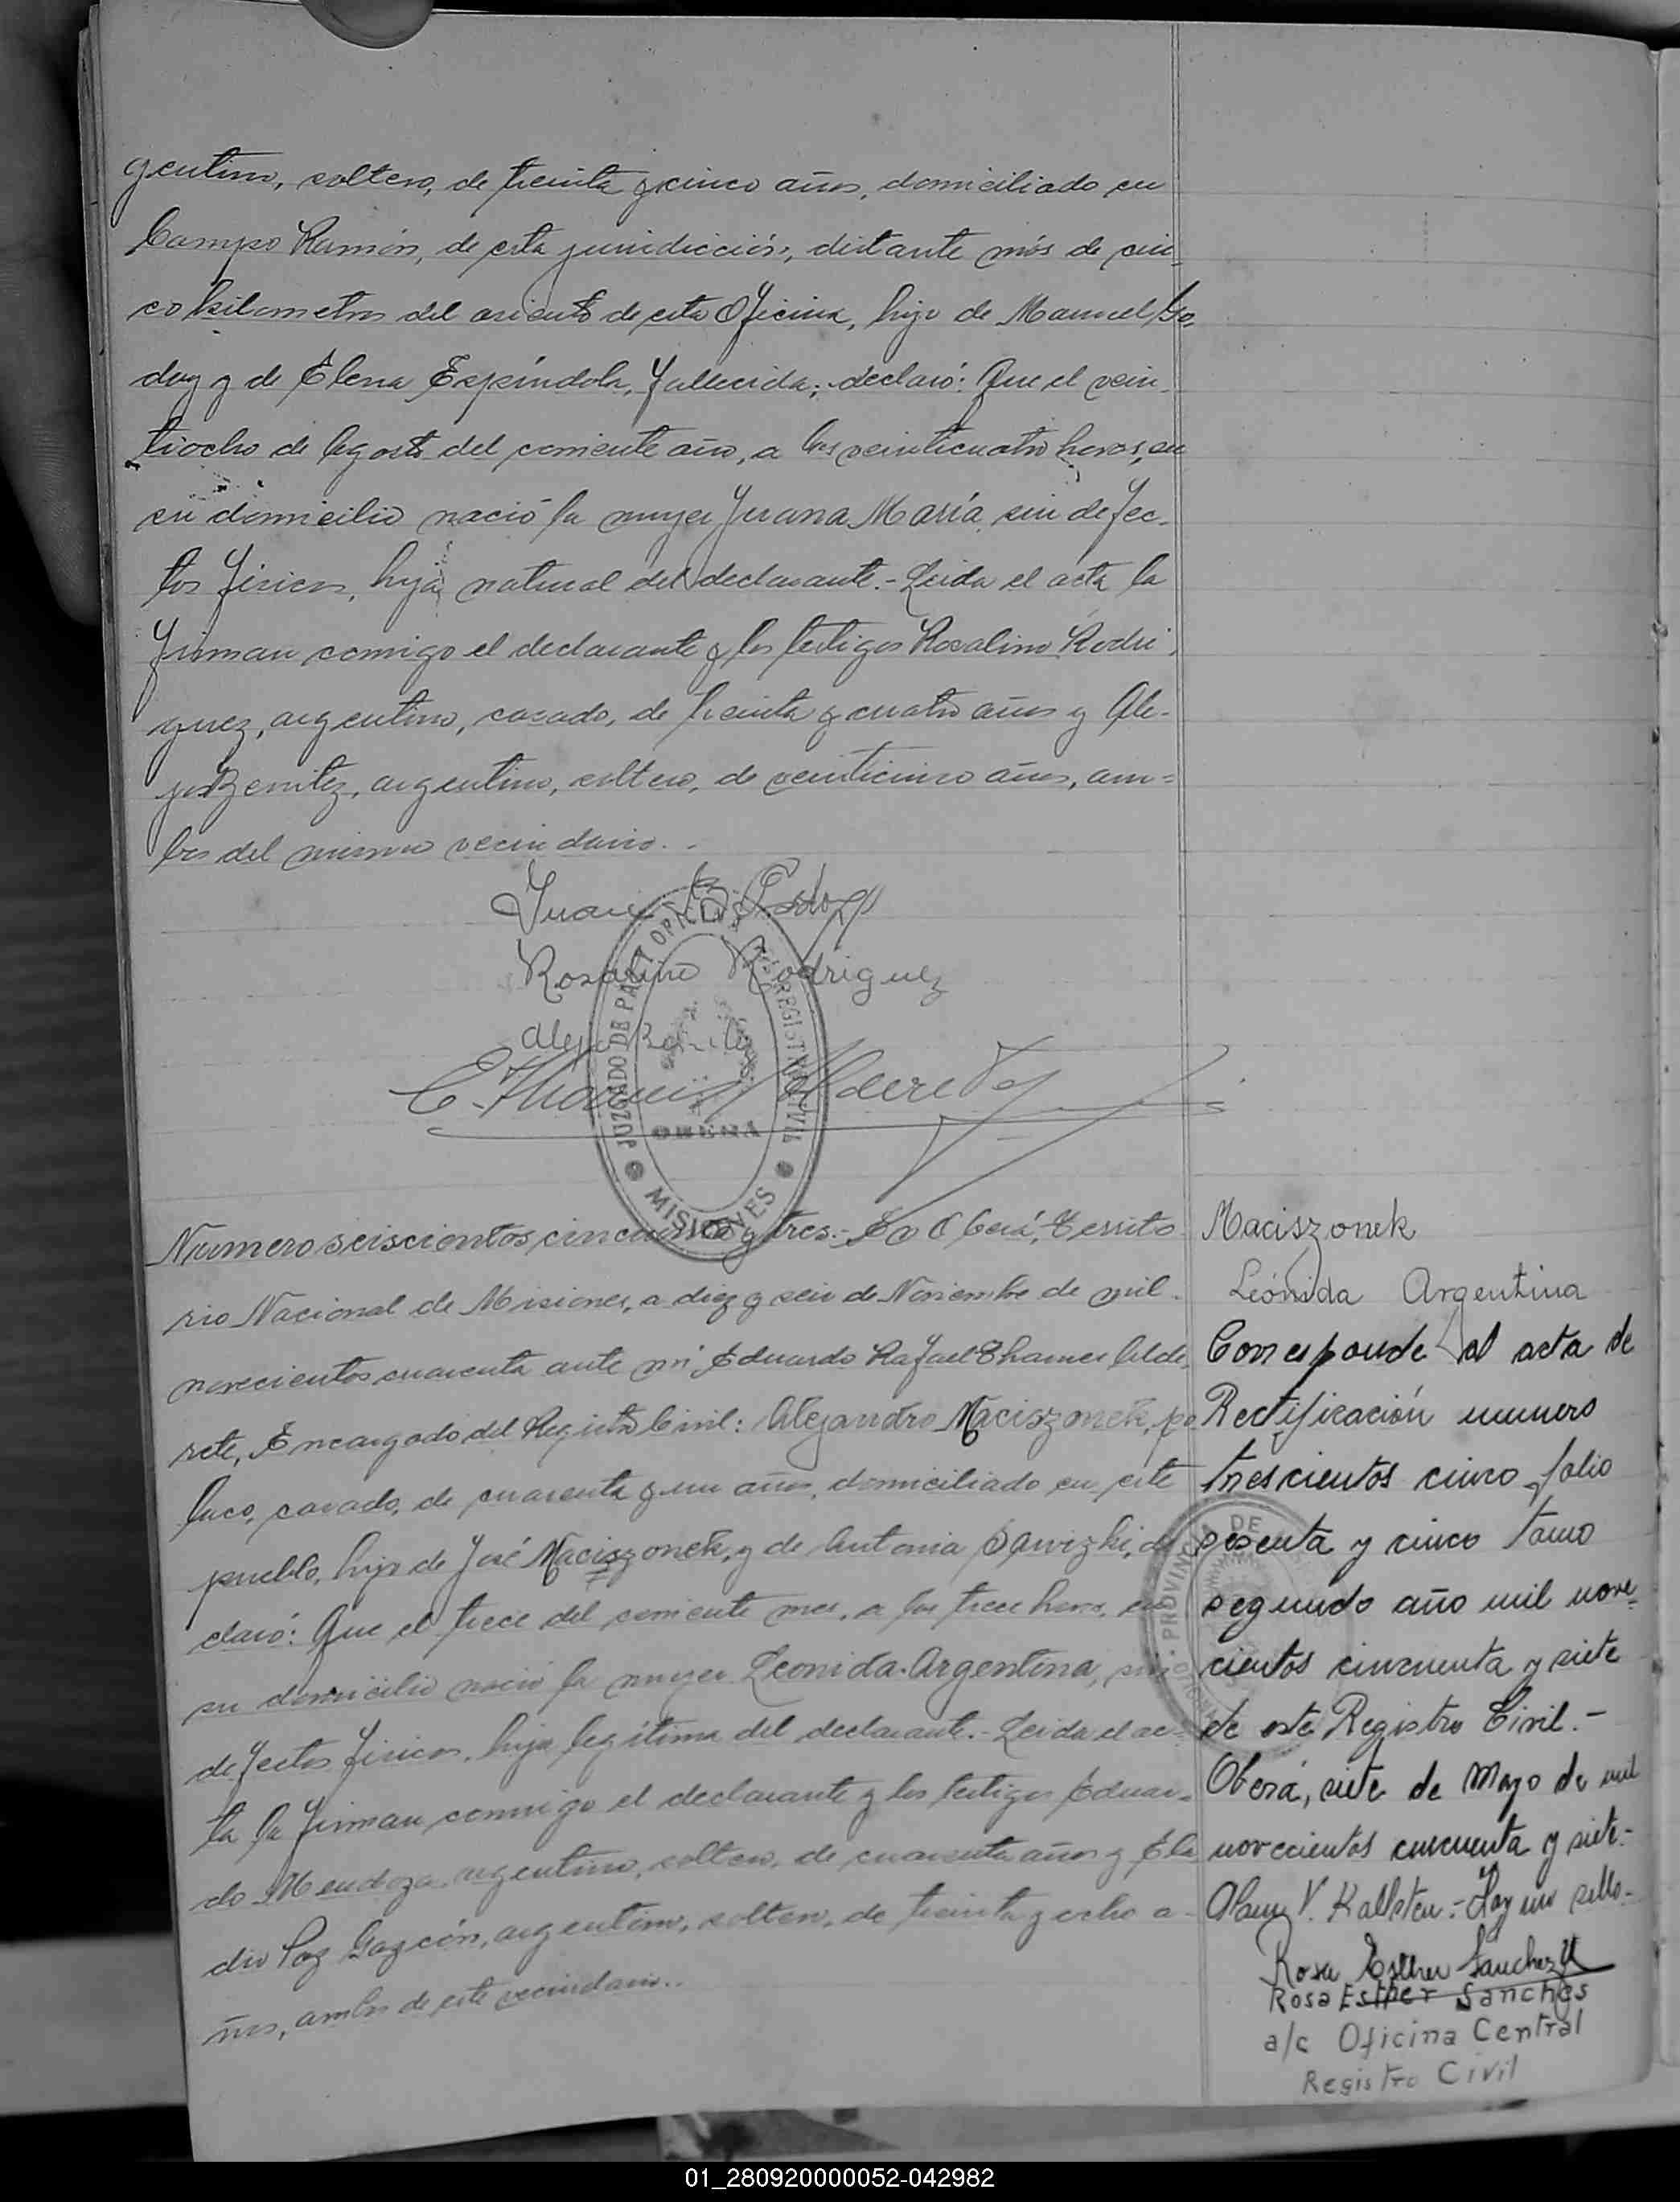 gentino, soltero, de treinta y cinco años, domiciliado en
Campo Ramón, de esta jurisdicción, distante más de cin-
co kilometros del asiento de esta Oficina, hijo de Manuel Go-
doy y de Elena Espíndola, fallecida; declaró: Que el vein-
tiocho de Agosto del corriente año, a las veinticuatro horas, en
su domicilio nació la mujer Juana María, sin defec-
tos fisicos, hija natural del declarante.- Leida el acta la
firman comigo el declarante y los testigos Rosalino Rodri-
guez, argentino, casado, de treinta y cuatro años y Ale-
jo Benitez, argentino, soltero, de veinticinco años, am=
bos del mismo vecindario..
Juan B. Godoy
Rosalino Rodriguez
Alejo Benitez
JUZGADO DE PAZ Y OFICINA DEL REGISTRO CIVIL
OBERA
MISIONES
Numero seiscientos cincuenta y tres.- En Oberá, Territo-
rio Nacional de Misiones, a diez y seis de Noviembre de mil-
novecientos cuarenta ante mi, Eduardo Rafael Thames Alde-
rete, Encargado del Registro Civil: Alejandro Maciszonek, po-
laco, casado, de cuarenta y un años, domiciliado en este
pueblo, hijo de José Maciszonek, y de Antonia Sawizki, de-
claró: Que el trece del corriente mes, a las trece horas, en
su domicilio nació la mujer Leonida Argentina, sin
defectos fisicos, hija legítima del declarante.- Leida el ac-
ta la firman conmigo el declarante y los testigos Eduar-
do Mendoza, argentino, soltero, de cuarenta años y Ela-
dio Paz Gazcón, argentino, soltero, de treinta y ocho a-
ños, ambos de este vecindario..
Maciszonek
Leónida Argentina
Corresponde al acta de
Rectificación numero
trescientos cinco folio
sesenta y cinco tomo
segundo año mil nove=
cientos cincuenta y siete
de este Registro Civil.-
Oberá, siete de Mayo de mil
novecientos cincuenta y siete.-
V. Kallsten.- Hay un sello-
PROVINCIA DE
Rosa Esther Sanchez
Rosa Esther Sanches
a/c Oficina Central
Registro Civil
01_280920000052-042982